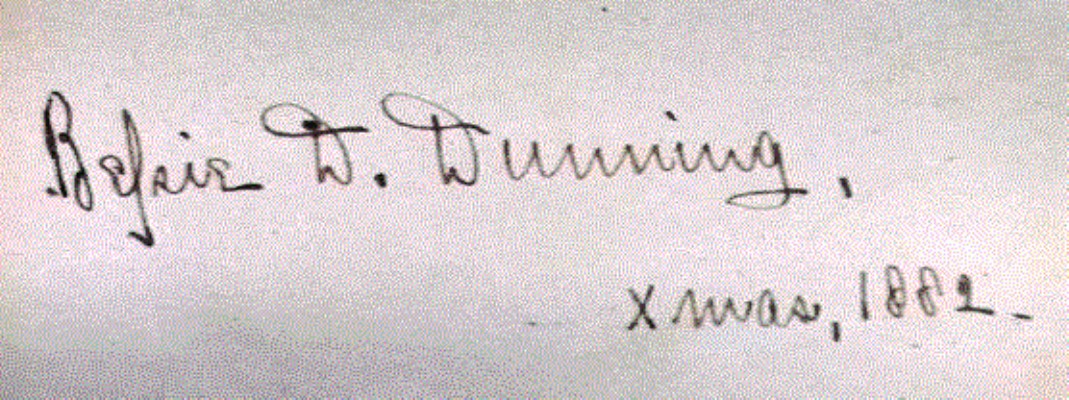 Bessie D. Dunning,
Xmas, 1882.